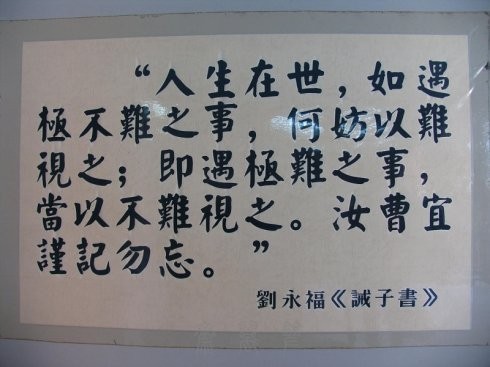 “人生在世，如遇
極不難之事，何妨以難
視之；即遇極難之事，
當以不難視之。汝曹宜
謹記勿忘。”
劉永福《誡子書》